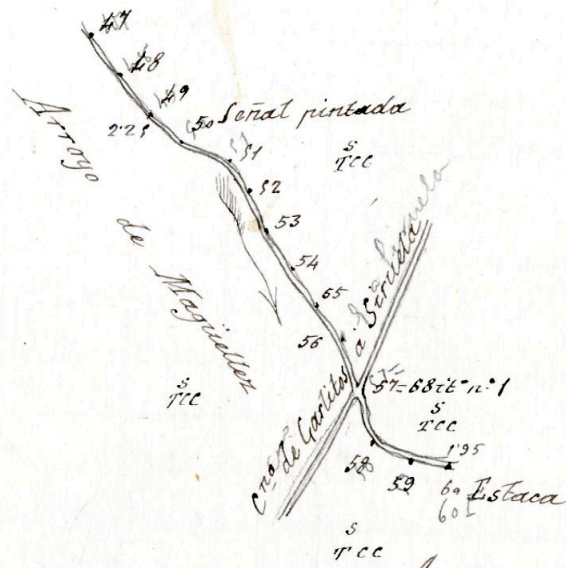 47
48
49
2'25
50 Señal pintada
51
52
53
54
55
56
S
TCC
Arroyo de Magüellez
S
TCC
Cno de Garlitos a Siruela
57=68 it° n° 1
S
TCC
58
59
1'95
60 Estaca
60
S
TCC